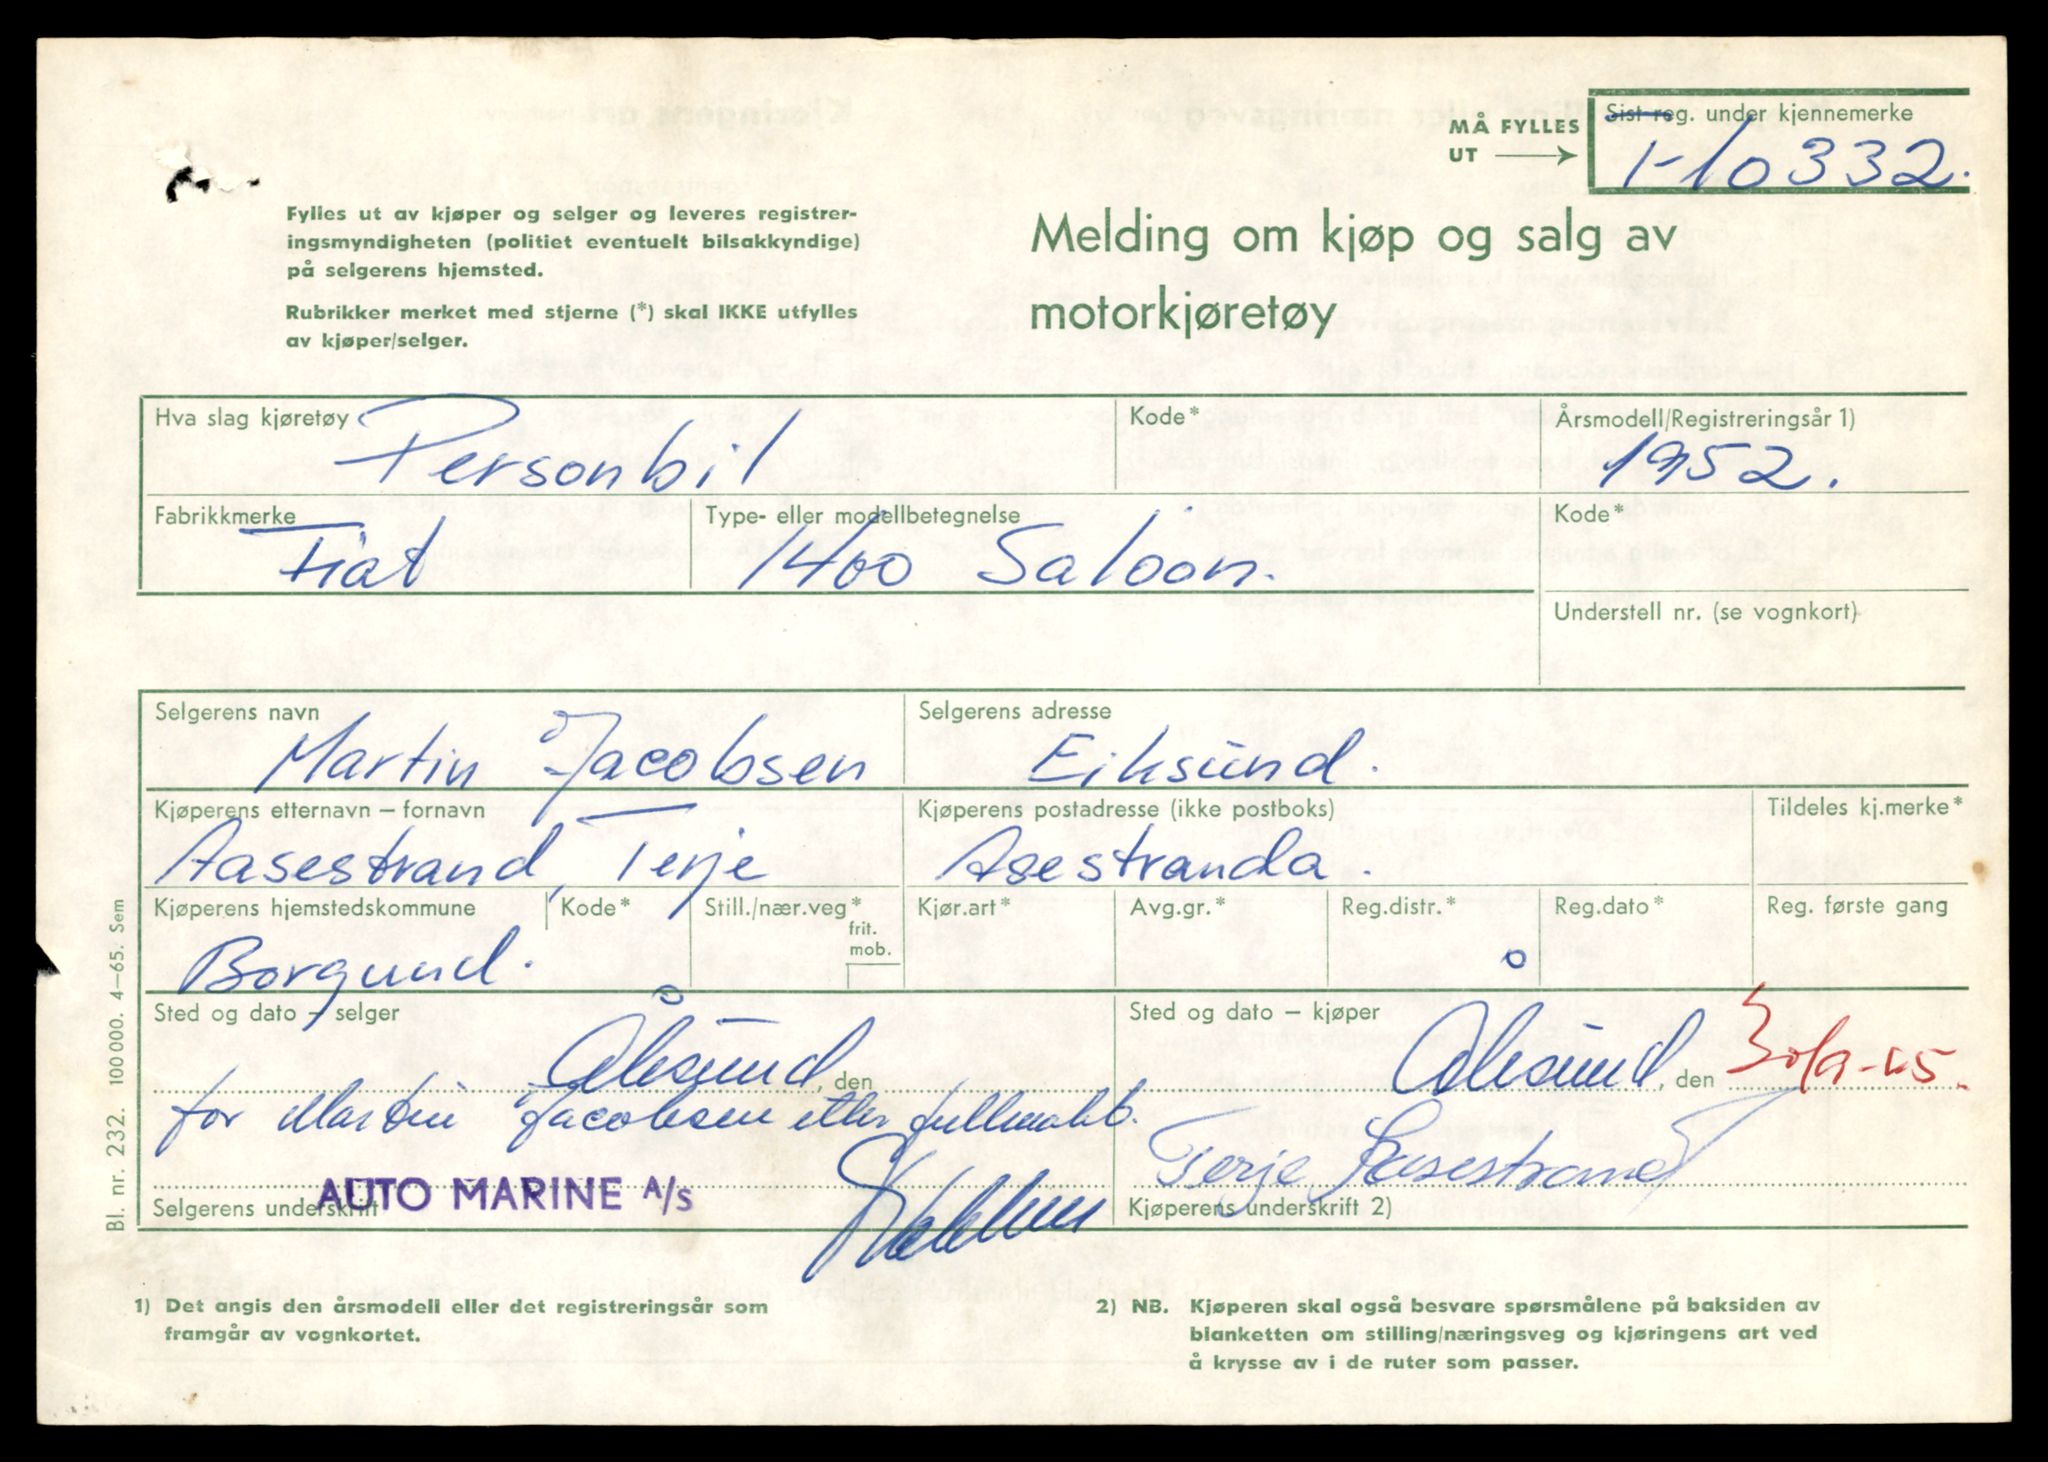 MÅ FYLLES UT
Sist reg. under kjennemerke
T-10332.
Fylles ut av kjøper og selger og leveres registrer-
ingsmyndigheten (politiet eventuelt bilsakkyndige)
på selgerens hjemsted.
Rubrikker merket med stjerne (*) skal IKKE utfylles
av kjøper/selger.
Melding om kjøp og salg av
motorkjøretøy
Hva slag kjøretøy Kode* Årsmodell/Registreringsår 1)
Personbil 1952.
Fabrikkmerke Type- eller modellbetegnelse Kode*
Fiat 1400 Saloon.
Understell nr. (se vognkort)
Selgerens navn Selgerens adresse
Martin Jacobsen Eiksund.
Kjøperens etternavn – fornavn Kjøperens postadresse (ikke postboks) Tildeles kj.merke*
Aasestrand, Terje Asestranda.
Kjøperens hjemstedskommune Kode* Still./nær.veg* Kjør.art* Avg.gr.* Reg.distr.* Reg.dato* Reg. første gang
frit.
mob.
Borgund.
Sted og dato – selger Sted og dato – kjøper
Ålesund, den Ålesund, den 30/9-65.
for Martin Jacobsen etter fullmakt.
AUTO MARINE A/S Terje Aasestrand
Selgerens underskrift Kjøperens underskrift 2)
1) Det angis den årsmodell eller det registreringsår som
framgår av vognkortet.
2) NB. Kjøperen skal også besvare spørsmålene på baksiden av
blanketten om stilling/næringsveg og kjøringens art ved
å krysse av i de ruter som passer.
Bl. nr. 232. 100 000. 4–65. Sem